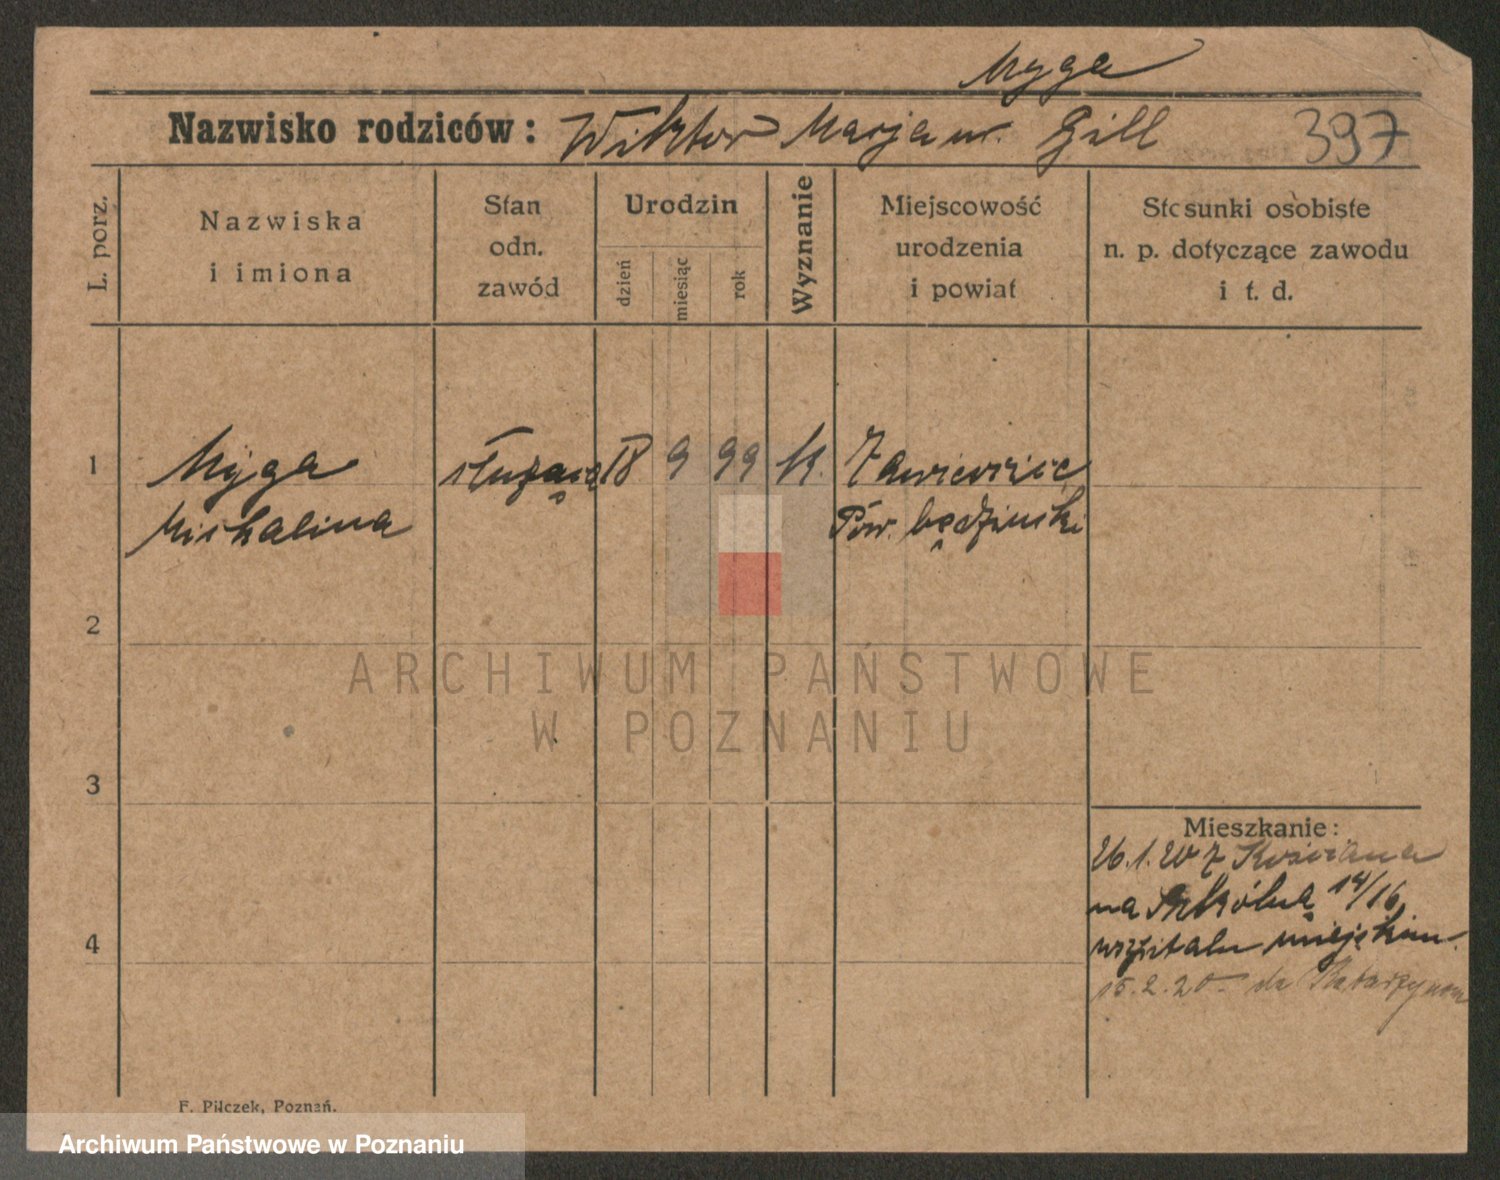 Myga
Nazwisko rodziców: Wiktor Marjann Gill 397
L. porz.
Nazwiska
i imiona
Stan
odn.
zawód
Urodzin
dzień
miesiąc
rok
Wyznanie
Miejscowość
urodzenia
i powiat
Stosunki osobiste
n. p. dotyczące zawodu
i t. d.
1 Myga służąca 18 9 99 k. Zawiercie
Michalina Pow. będzinski
2
ARCHIWUM PAŃSTWOWE
W POZNANIU
3
Mieszkanie:
26.1.20 z Kościana
na Szkólną 14/16
w szpitalu miejskim.
4
15.2.20 do
F. Pilczek, Poznań.
Archiwum Państwowe w Poznaniu